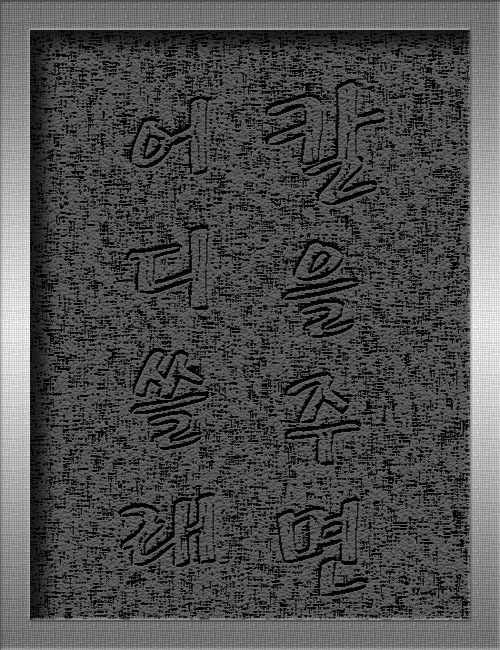 칼을주면
어디쓸래